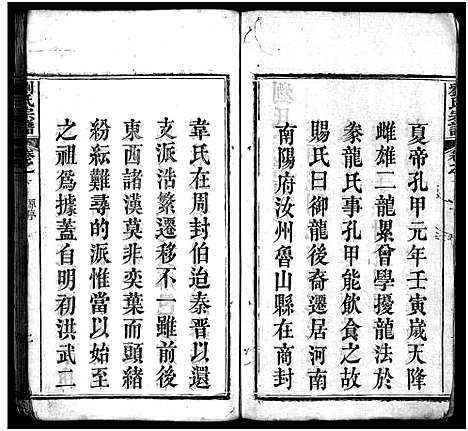 夏帝孔甲元年壬寅歲天降
雌雄二龍累曾學擾龍法於
豢龍氏事孔甲能飲食之故
賜氏曰御龍後裔遷居河南
南陽府汝州魯山縣在商封
韋氏在周封伯迨秦晋以還
支派浩繁遷移不一雖前後
東西諸漢莫非奕葉而頭緒
紛紜難尋的派惟當以始至
之祖爲據葢自明初洪武二
劉氏宗譜